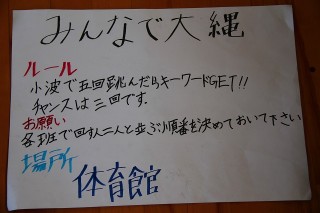 みんなで大縄
ルール
小波で五回跳んだらキーワードGET!!
チャンスは三回です。
お願い
各班で回す人二人と並ぶ順番を決めておいて下さい
場所
体育館